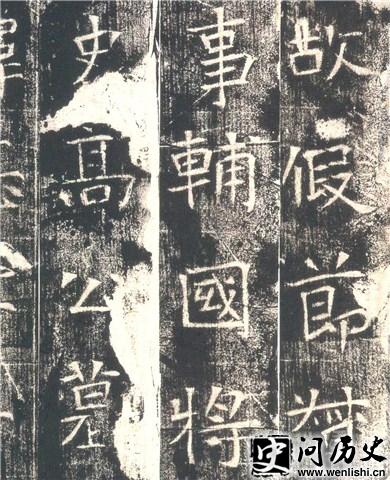 故假節
事輔國將
史高公墓
史 问历史
www.wenlishi.cn